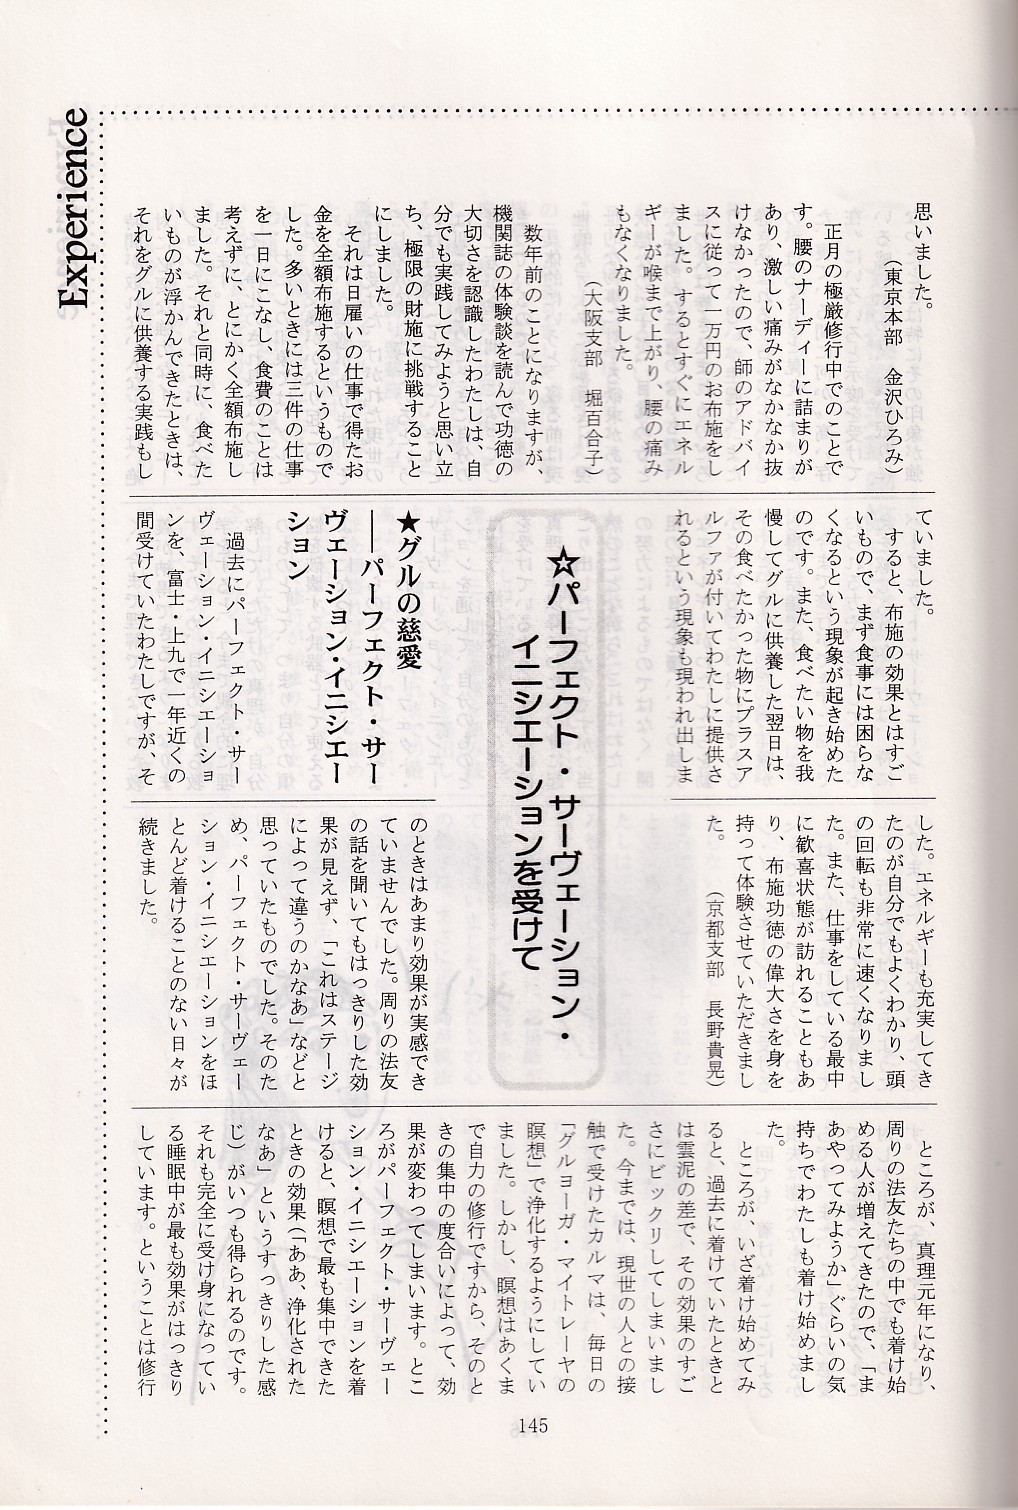 Experience
思いました。
（東京本部　金沢ひろみ）
正月の極厳修行中でのことで
す。腰のナーディーに詰まりが
あり、激しい痛みがなかなか抜
けなかったので、師のアドバイ
スに従って一万円のお布施をし
ました。するとすぐにエネル
ギーが喉まで上がり、腰の痛み
もなくなりました。
（大阪支部　堀百合子）
数年前のことになりますが、
機関誌の体験談を読んで功徳の
大切さを認識したわたしは、自
分でも実践してみようと思い立
ち、極限の財施に挑戦すること
にしました。
それは日雇いの仕事で得たお
金を全額布施するというもので
した。多いときには三件の仕事
を一日にこなし、食費のことは
考えずに、とにかく全額布施し
ました。それと同時に、食べた
いものが浮かんできたときは、
それをグルに供養する実践もし
ていました。
すると、布施の効果とはすご
いもので、まず食事には困らな
くなるという現象が起き始めた
のです。また、食べたい物を我
慢してグルに供養した翌日は、
その食べたかった物にプラスア
ルファが付いてわたしに提供さ
れるという現象も現われ出しま
した。エネルギーも充実してき
たのが自分でもよくわかり、頭
の回転も非常に速くなりまし
た。また、仕事をしている最中
に歓喜状態が訪れることもあ
り、布施功徳の偉大さを身を
持って体験させていただきまし
た。
（京都支部　長野貴晃）
☆パーフェクト・サーヴェーション・
イニシエーションを受けて
★グルの慈愛
――パーフェクト・サー
ヴェーション・イニシエー
ション
過去にパーフェクト・サー
ヴェーション・イニシエーショ
ンを、富士・上九で一年近くの
間受けていたわたしですが、そ
のときはあまり効果が実感でき
ていませんでした。周りの法友
の話を聞いてもはっきりした効
果が見えず、「これはステージ
によって違うのかなあ」などと
思っていたものでした。そのた
め、パーフェクト・サーヴェー
ション・イニシエーションをほ
とんど着けることのない日々が
続きました。
ところが、真理元年になり、
周りの法友たちの中でも着け始
める人が増えてきたので、「ま
あやってみようか」ぐらいの気
持ちでわたしも着け始めまし
た。
ところが、いざ着け始めてみ
ると、過去に着けていたときと
は雲泥の差で、その効果のすご
さにビックリしてしまいまし
た。今までは、現世の人との接
触で受けたカルマは、毎日の
「グルヨーガ・マイトレーヤの
瞑想」で浄化するようにしてい
ました。しかし、瞑想はあくま
で自力の修行ですから、そのと
きの集中の度合いによって、効
果が変わってしまいます。とこ
ろがパーフェクト・サーヴェー
ション・イニシエーションを着
けると、瞑想で最も集中できた
ときの効果（「ああ、浄化された
なあ」というすっきりした感
じ）がいつも得られるのです。
それも完全に受け身になってい
る睡眠中が最も効果がはっきり
しています。ということは修行
145